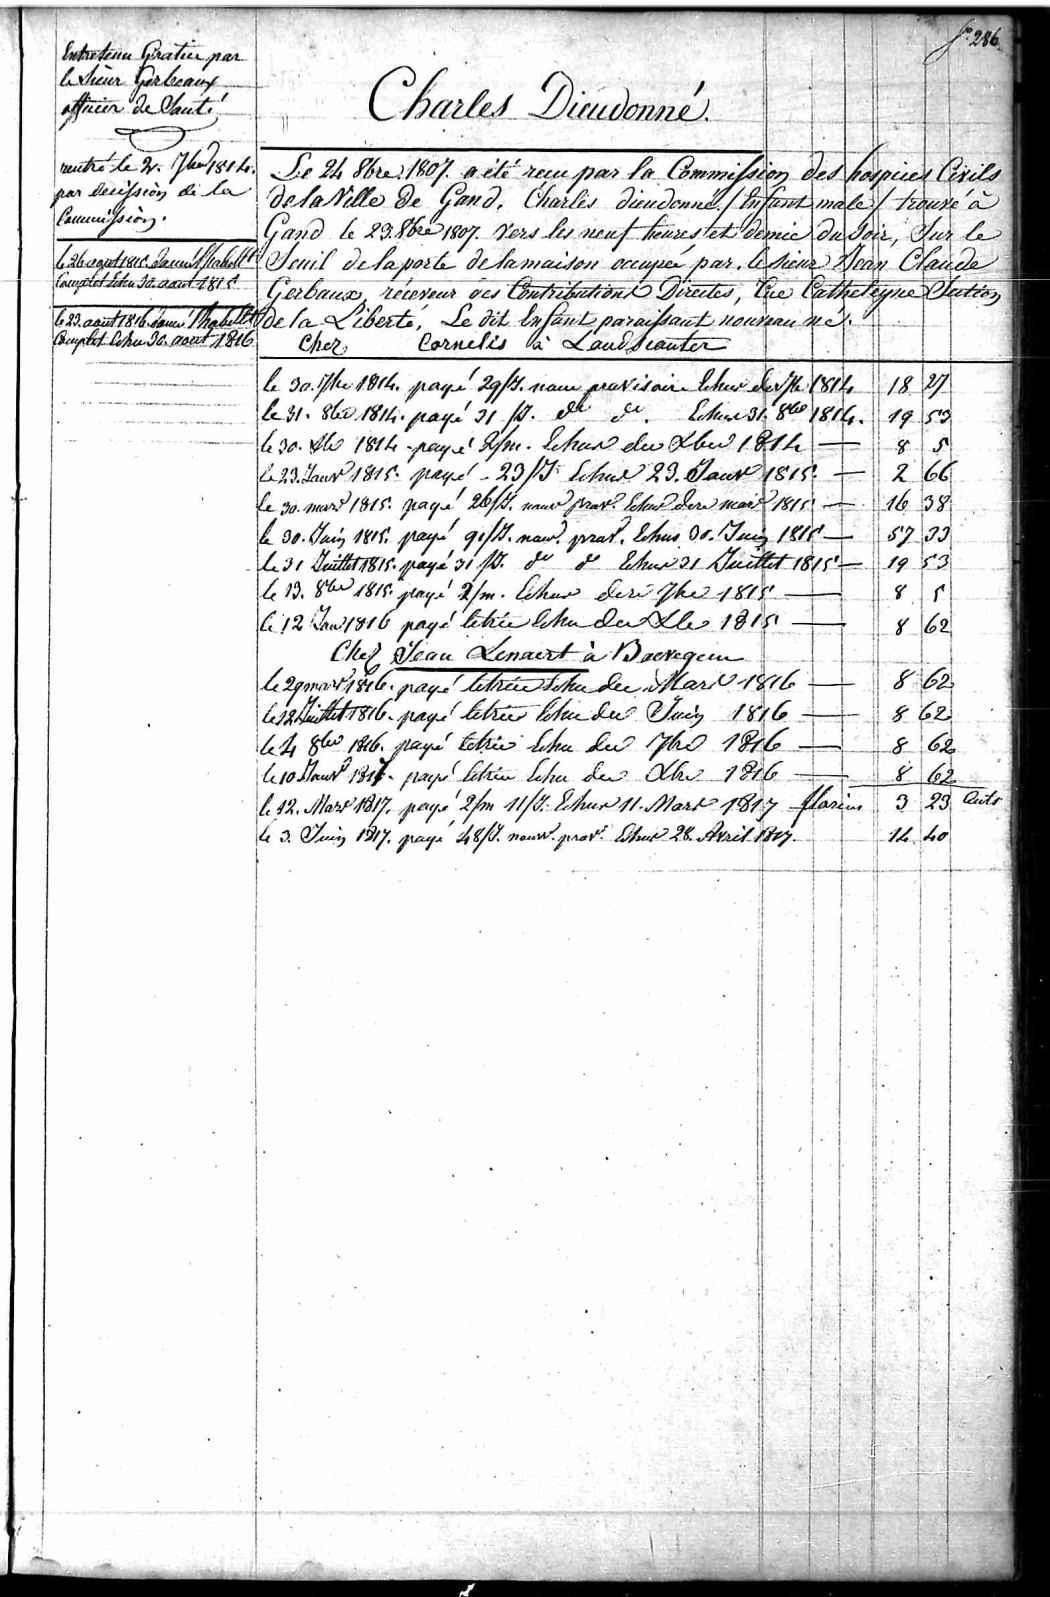 fo 286
Entretenu Gratis par
le Sieur Gerbeaux
officier de Santé
rentré le 2. 7bre 1814.
par decission de la
Commission.
le 26 aout 1815. donné l'habillt
Complet Echu 30. aout 1815
le 23. aout 1816. donné l'habillet
Complet Echu 30. aout 1816
Charles Dieudonné.
Le 24 8bre 1807. a été recu par la Commission des hospices Civils
de la Ville de Gand, Charles dieudonné / Enfant male / trouvé à
Gand le 23. 8bre 1807. vers les neuf heures et demie du Soir, Sur le
Seuil de la porte de la maison occupée par le Sieur Jean Claude
Gerbaux, réceveur des Contributions Directes, Rue Catheleyne Section
de la Liberté, Le dit Enfant paraissant nouveau né.
Chez Cornelis à Landscauter
le 30. 7bre 1814. payé 29/J. nouv provisoir Echus der 7bre 1814 18 27
le 31. 8bre 1814. payé 31 /J. do do. Echus 31. 8bre 1814. 19 53
le 30. Xbre 1814 payé 2/m. Echus der Xbre 1814 — 8 5
le 23. Janv 1815. payé 23/J Echus 23. Janv 1815. — 2 66
le 30. mars 1815. payé 26/J. nouv prov. Echus dere mars 1815 — 16 38
le 30. Juin 1815. payé 91/J. nouv. prov. Echus 30. Juin 1815 — 57 33
le 31 Juillet 1815. payé 31 /J. do do Echus 31 Juillet 1815 — 19 53
le 13. 8bre 1815. payé 2/m. Echus dere 7bre 1815 — 8 5
le 12 Janv 1816 payé letrée Echu der Xbre 1815 — 8 62
Chez Jean Lenaert à Baevegem
le 29 mars 1816. payé letrée Echu der Mars 1816 — 8 62
le 12 Juillet 1816. payé letrée Echu der Juin 1816 — 8 62
le 4 8bre 1816. payé letrée Echu der 7bre 1816 — 8 62
le 10 Janv 1817. payé letrée Echu der Xbre 1816 — 8 62
le 12. Mars 1817. payé 2/m 11/J. Echus 11. Mars 1817 florins 3 23 Cents
le 3. Juin 1817. payé 48/J. nouv. prov. Echus 28. Avril 1817. 14 40